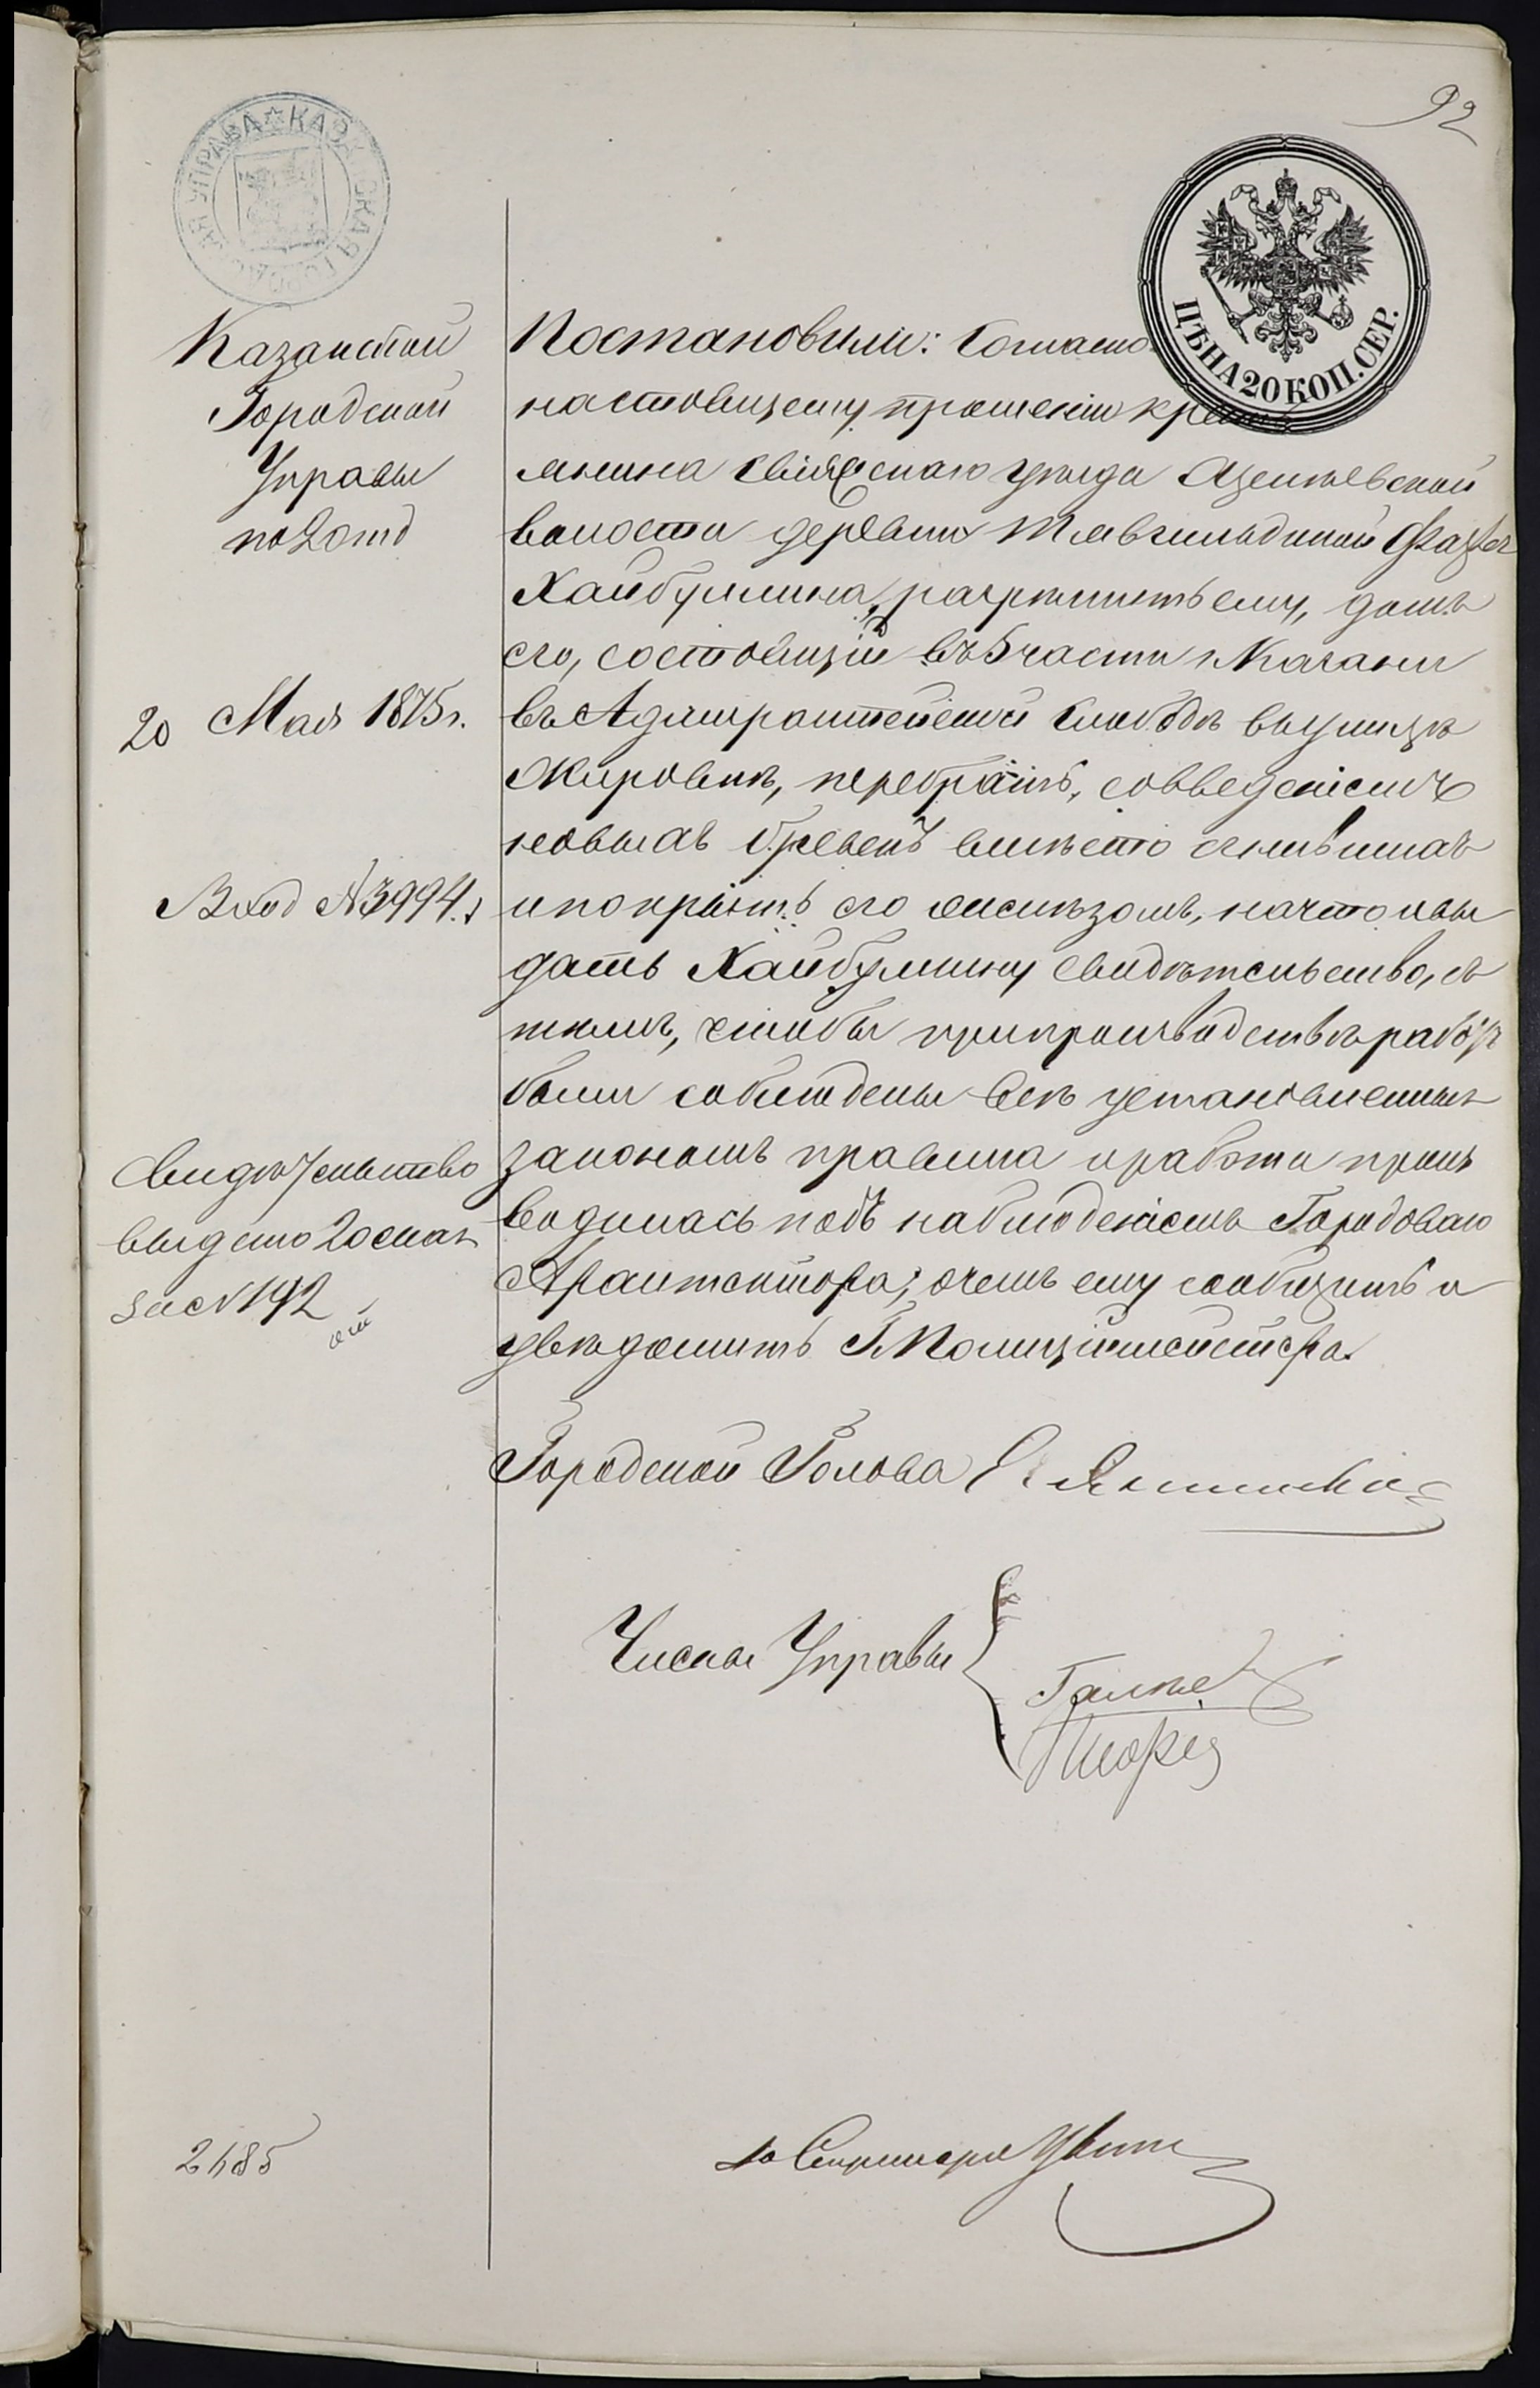 92
КАЗАНСКАЯ ГОРОДСКАЯ УПРАВА
ЦѢНА 20 КОП. СЕР.
Казанской
Городской
Управы
по 2 отд
20 Мая 1875 г.
Вход № 3994.
Свидѣтельство
выдано 20 мая
за № 192
2485
Постановили: Согласно
настоящему прошенію кресть
янина Свіяжскаго уѣзда Азелеевской
волости деревни
Хайбуллина, разрѣшить ему, домъ
его, состоящій въ 5 части г. Казани
въ Адмиралтейской слободѣ въ улицѣ
Жировкѣ, перебрать, со введеніемъ
новыхъ бревенъ вмѣсто сгнившихъ
и покрыть его желѣзомъ, на что и вы
дать Хайбуллину свидѣтельство, съ
тѣмъ, чтобы при производствѣ работъ
были соблюдены всѣ установленныя
закономъ правила и работа произ
водилась подъ наблюденіемъ Городоваго
Архитектора; о чемъ ему сообщить и
увѣдомить Г. Полиціймейстера.
Городской Голова Е. Янишевскій
Члены Управы
за Секретаря